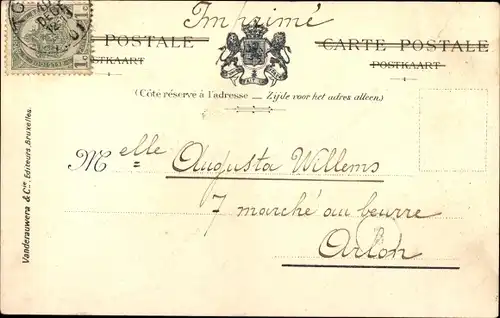 Imprimé
POSTALE CARTE POSTALE
POSTKAART POSTKAART
(Côté réservé à l'adresse — Zijde voor het adres alleen.)
Melle Augusta Willems
7 marché au beurre
Arlon
Vanderauwera & Cie, Editeurs, Bruxelles.